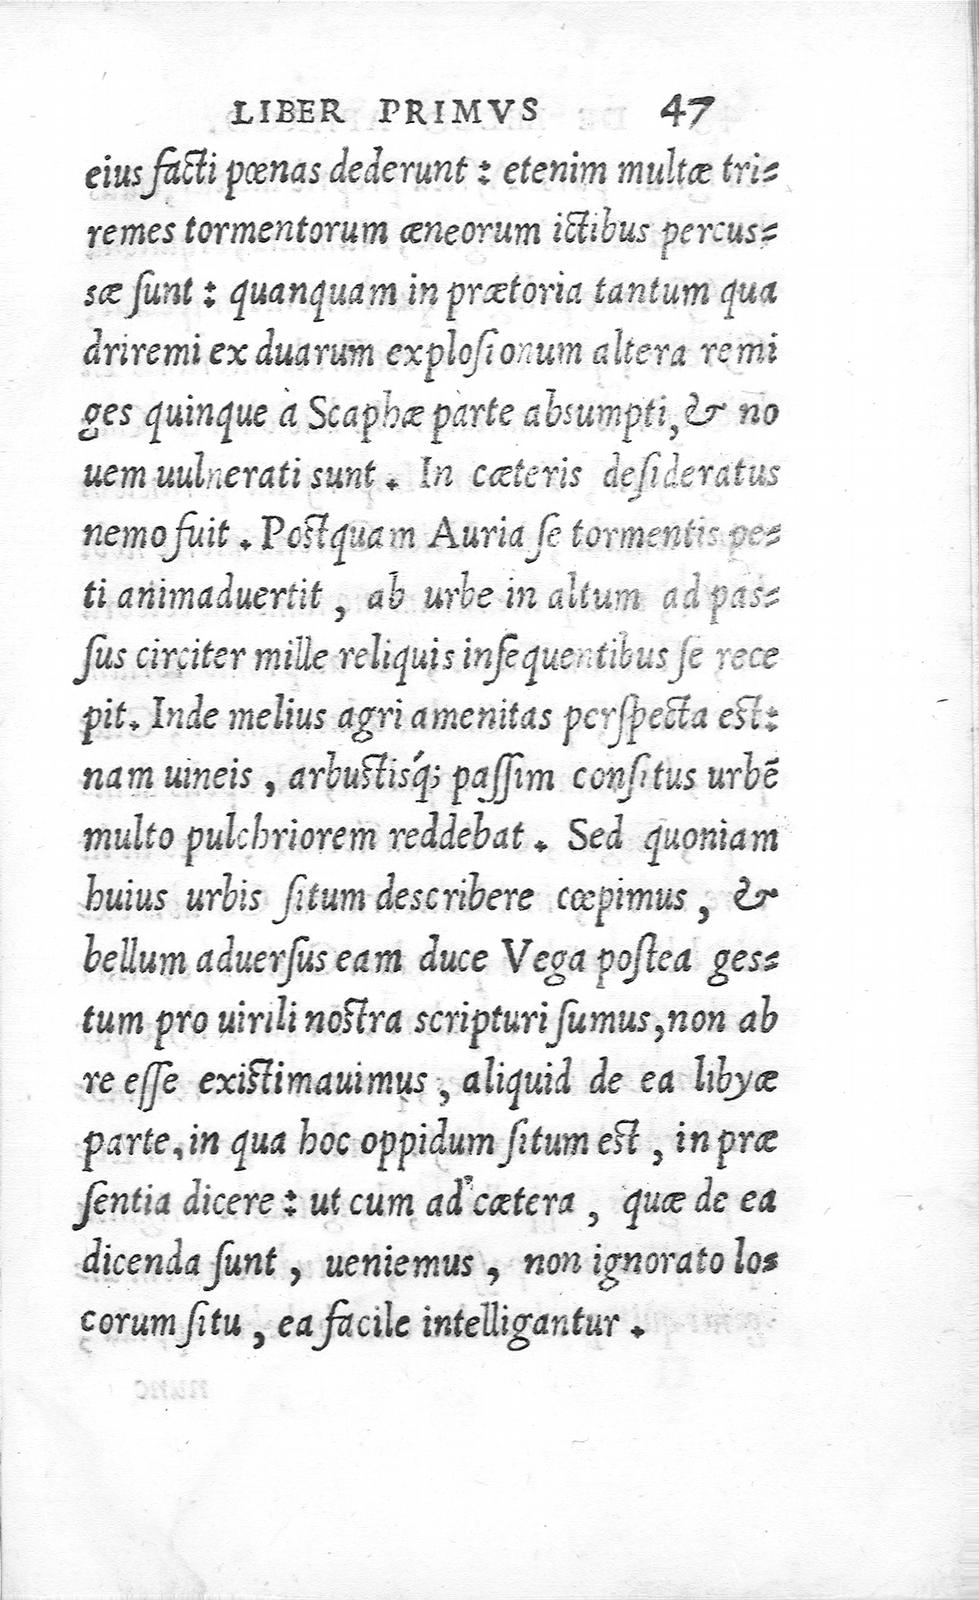 LIBER PRIMVS 47
eius facti pœnas dederunt : etenim multæ tri=
remes tormentorum æneorum ictibus percus=
sæ ſunt : quanquam in prætoria tantum qua
driremi ex duarum exploſionum altera remi
ges quinque à Scaphæ parte absumpti, & no
uem uulnerati sunt . In cæteris deſideratus
nemo fuit . Postquam Auria ſe tormentis pe=
ti animaduertit , ab urbe in altum ad pas=
ſus circiter mille reliquis inſequentibus ſe rece
pit. Inde melius agri amenitas perſpecta est:
nam uineis , arbustisq́; paſſim conſitus urbē
multo pulchriorem reddebat . Sed quoniam
huius urbis ſitum describere cœpimus , &
bellum aduerſus eam duce Vega poſtea ges=
tum pro uirili nostra scripturi ſumus, non ab
re eſſe existimauimus , aliquid de ea libyæ
parte, in qua hoc oppidum ſitum est , in præ
ſentia dicere : ut cum ad cætera , quæ de ea
dicenda ſunt , ueniemus , non ignorato lo=
corum ſitu , ea facile intelligantur .